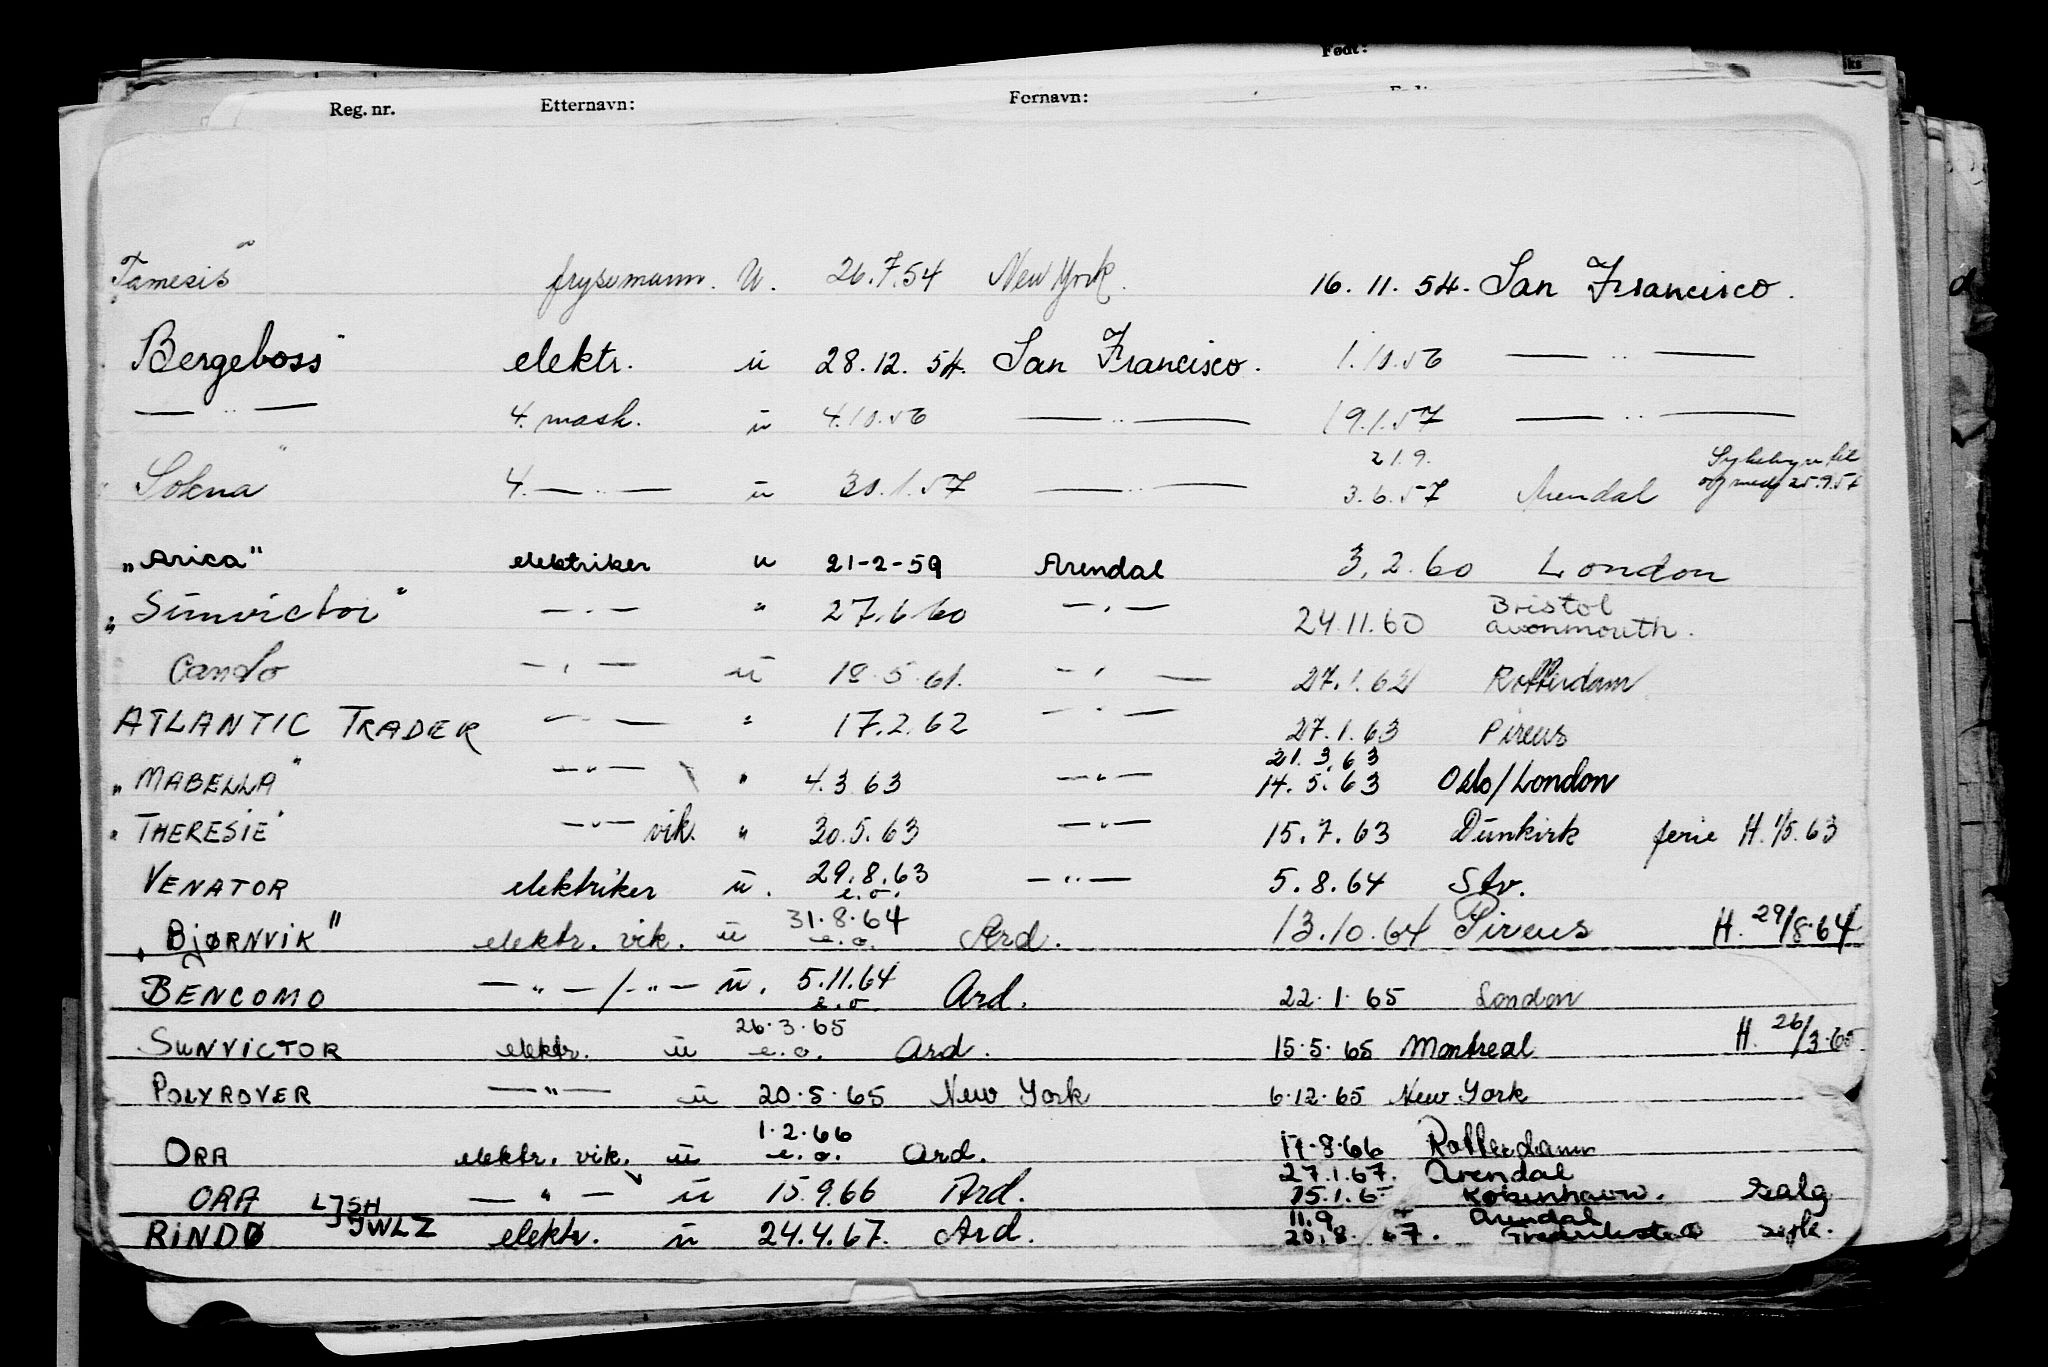 Født:
Reg. nr. Etternavn: Fornavn:
"Tamesis" frysemann. u. 26.7.54 New York. 16. 11. 54. San Francisco.
Bergeboss" elektr. ü 28.12. 54. San Francisco. 1.10.56 — " —
— " — 4. mask. ü 4.10.56 — " — 19.1.57 — " —
21.9.
Sokna" 4. — " — ü 30.1.57 — " — 3.6.57 Arendal 25.9.57
„Arica" elektriker u 21-2-59 Arendal 3.2.60 London
„Sünvictor" — " — " 27.6.60 — " — 24.11.60 Bristol
avonmouth.
Cando — " — ü 18.5.61. — " — 27.1.62 Rotterdam
ATLANTIC TRADER — " — " 17.2.62 — " — 27.1.63 Pireus
21.3.63
„MABELLA" — " — " 4.3.63 — " — 14.5.63 Oslo/London
"THERESIE" — " — vik. " 30.5.63 — " — 15.7.63 Dünkirk ferie H. 1/5.63
VENATOR elektriker ü. 29.8.63 — " — 5.8.64 Stv.
e.o.
„BJØRNVIK" elektr. vik. ü 31.8.64 Ard. 13.10.64 Pireus H. 29/8.64
e.o.
BENCOMO — " — / — " — ü. 5.11.64 Ard. 22.1.65 London
e.o.
26.3.65
SUNVICTOR elektr. ü e.o. Ard. 15.5.65 Montreal H. 26/3.65
POLYROVER — " — ü 20.5.65 New York 6.12.65 New York
1.2.66
ORA elektr. vik. ü e.o. Ard. 17.8.66 Rotterdam
27.1.67. Arendal
ORA LJSH — " — ü 15.9.66 Ard. 15.1.6 København. salg
11.9 Arendal
RINDØ JWLZ elektr. ü 24.4.67. Ard. 20.8. 67. Frederikstad syk.